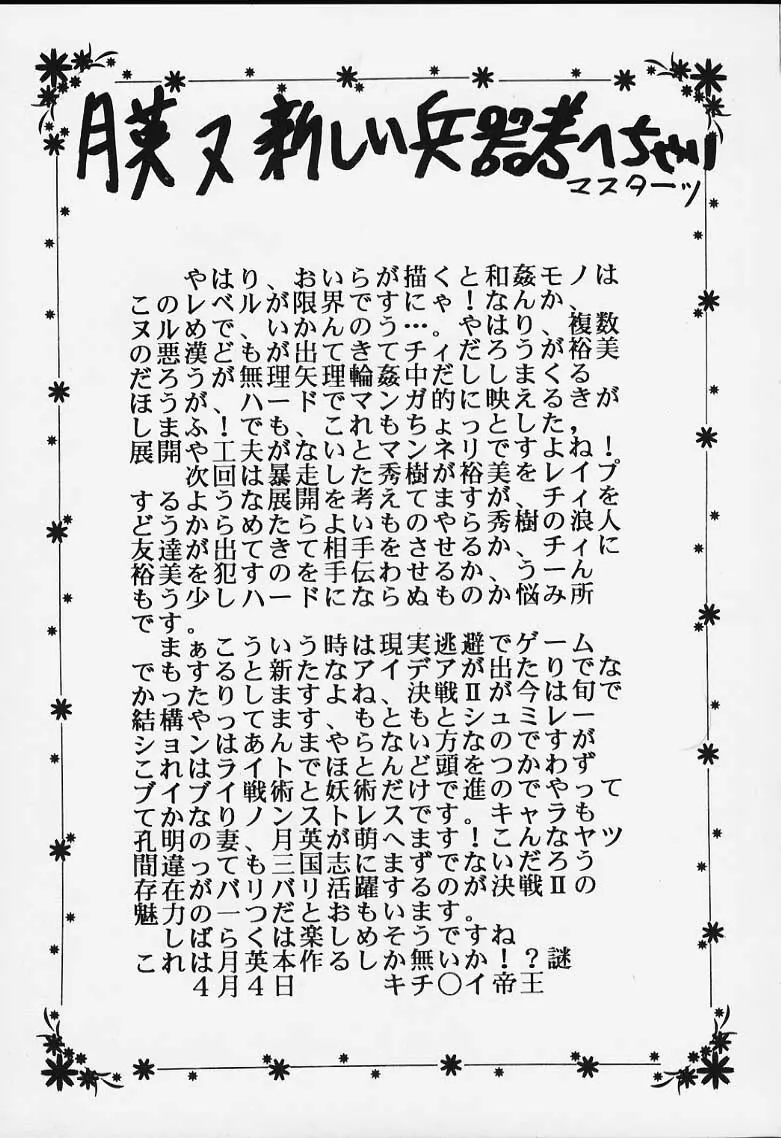 月英ヌ新しい兵器考へちゃい
マスターツ
やはり、おいらが描くと和姦モノは
このレベルが限界ですにゃ！なんか、
ヌルめで、いかんのう…。やはり、複数
の悪漢どもが出てきてチィだろうが裕美
だろうが無理矢理輪姦中だしまくる
ほうが、ハードでマンガ的に映えるきが
しまふ！でも、これもちょっとした，
展開や工夫がないとマンネリですよね！
次回は暴走した秀樹が裕美をレイプ
するような展開を考えてますが、チィを
どうからめたらよいものやら秀樹の浪人
友達が出てきて相手をさせるか、チィに
裕美を犯すのを手伝わせるか、うーん
もう少しハードにならぬものか悩み所
です。
まぁこういう時は現実逃避でゲーム
でもすると新たなアイデアが出たりでな
かったりしますよね、決戦Ⅱが今は旬で
結構やってます、もともとシュミレー
ションはあんまやらない方なのですが
これはライトでほとんど頭をつかわず
ブイブイ戦術と妖術だけで進のでやって
てかなりノンストレスです。キャラも
孔明の妻、月英が萌へます！こんなヤツ
間違っても三国志にまずでないだろう
存在がバリバリ活躍するのが決戦Ⅱの
魅力の一つだとおもいます。
しばらくは楽しめそうですね
これは月英本作るしか無いか！？謎
4月4日　キチ〇イ帝王